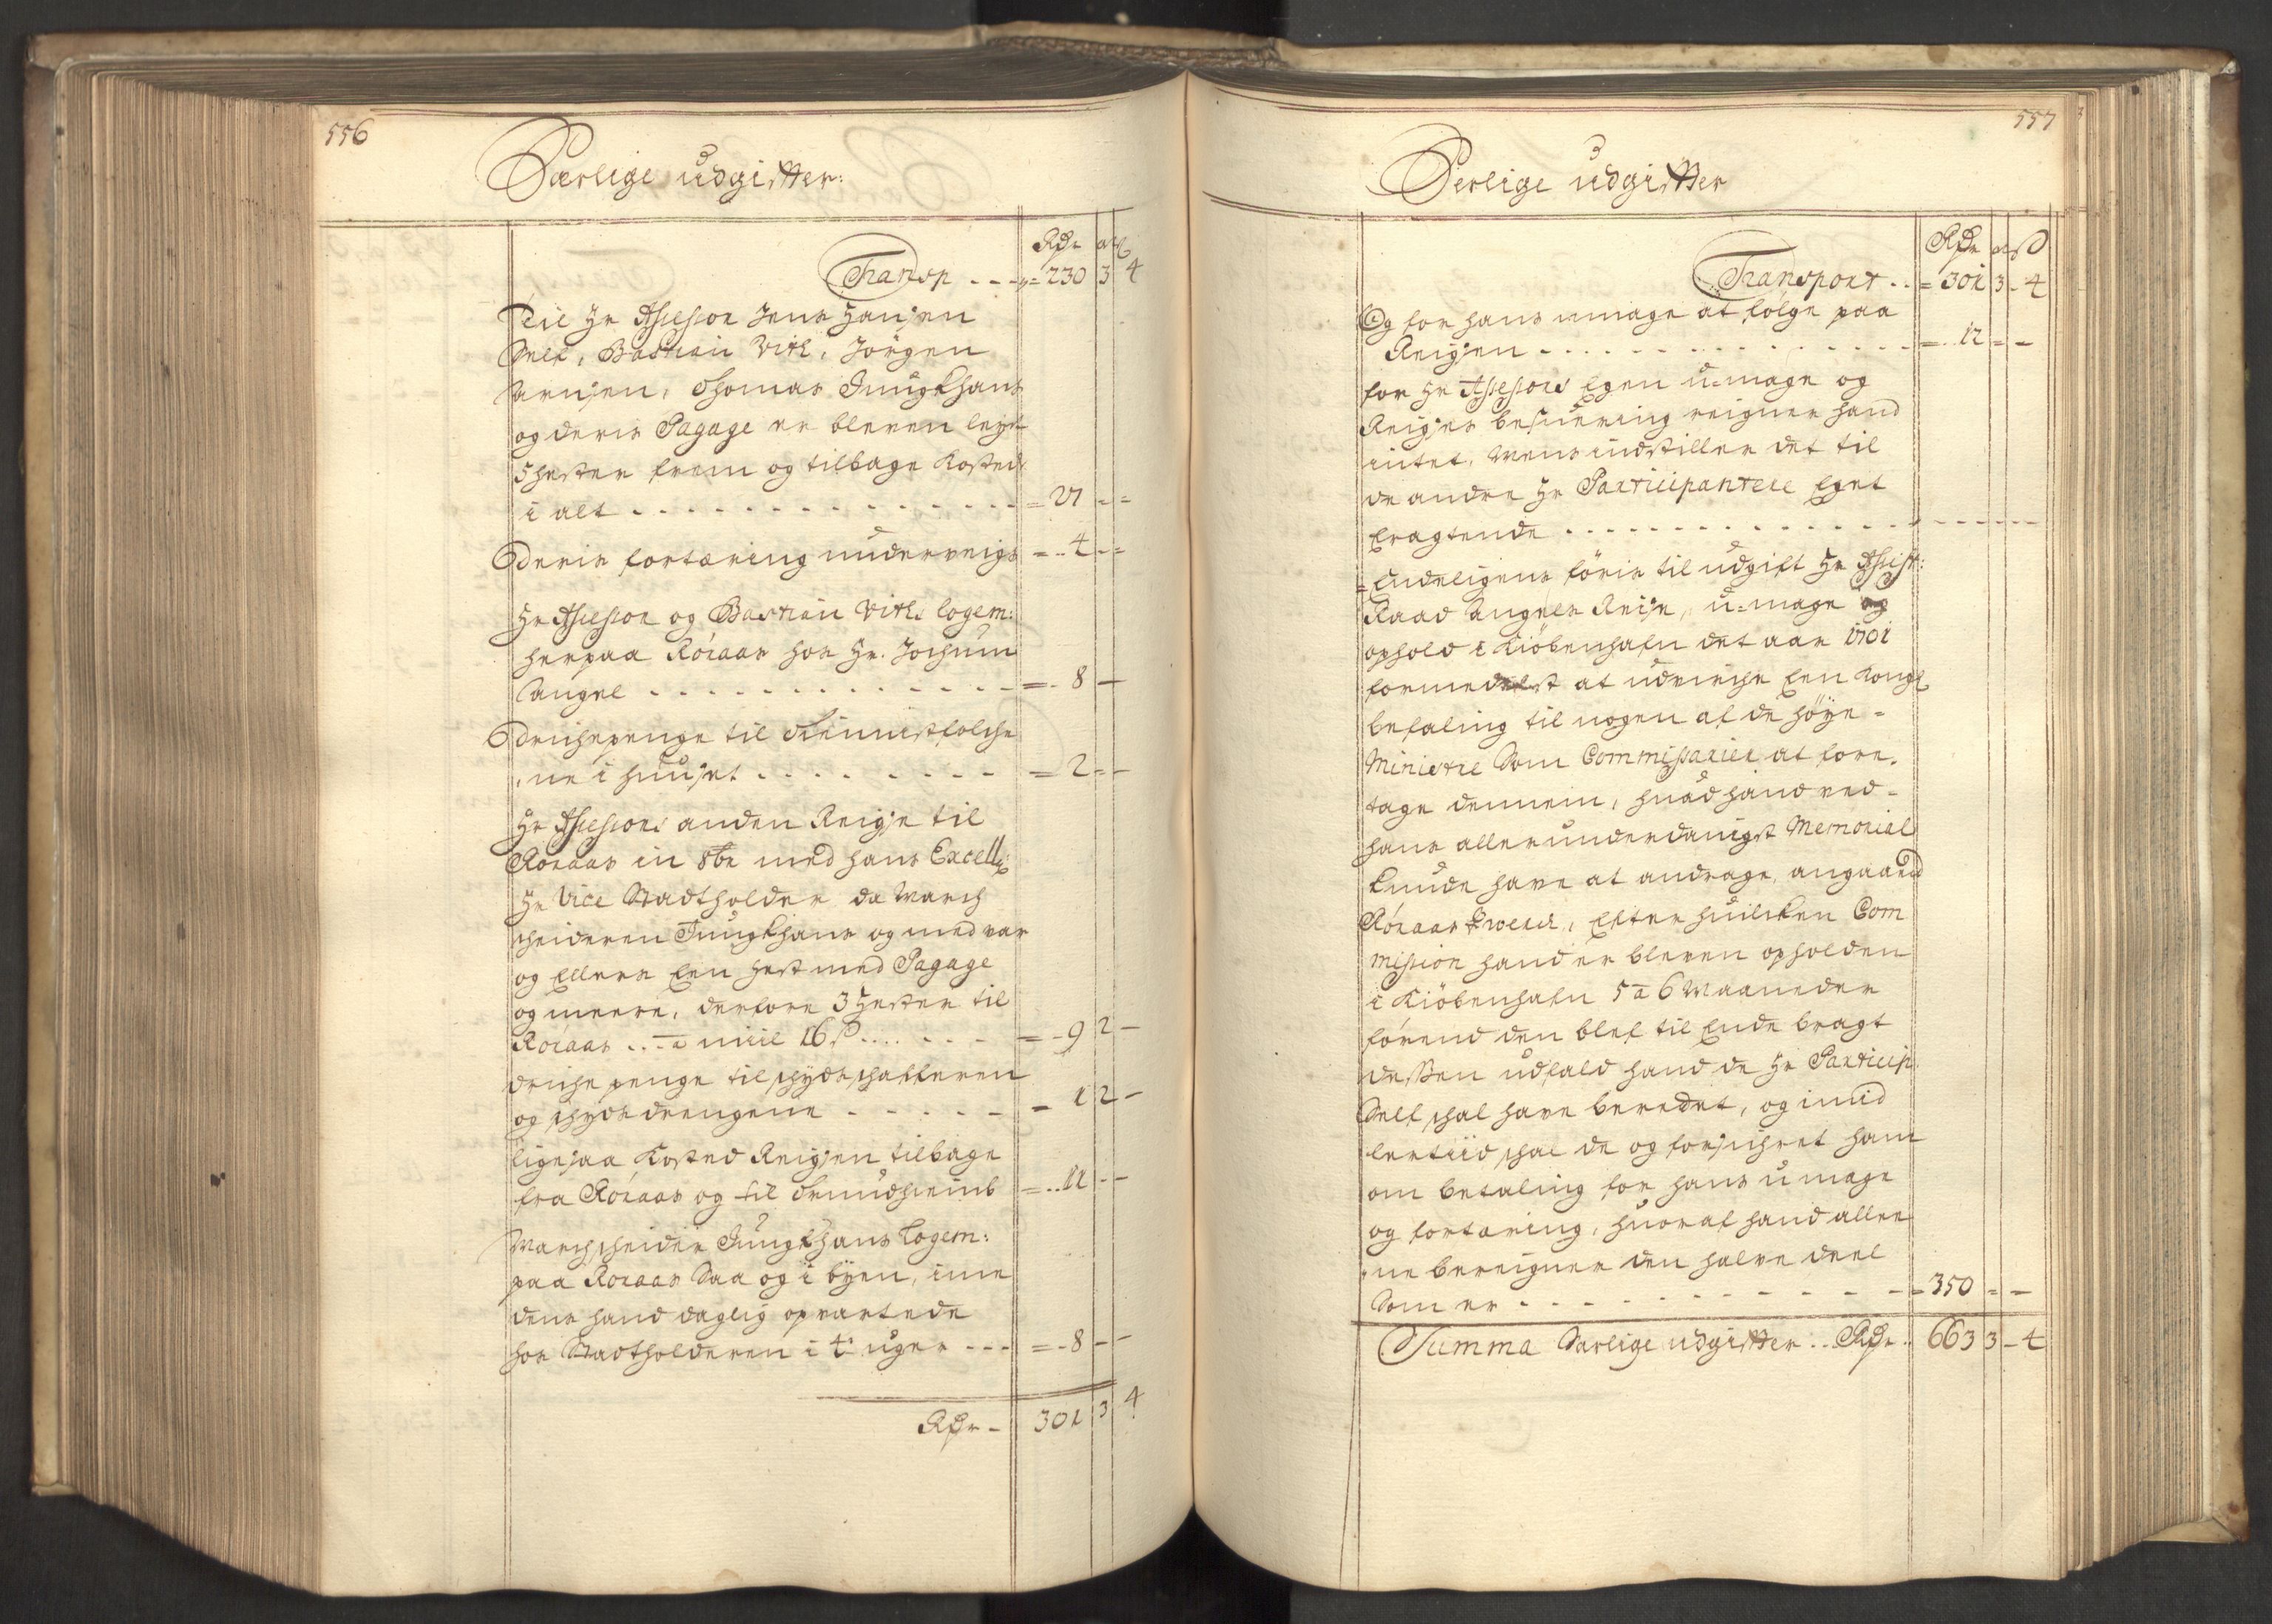 556
Særlige udgifter:
Rdr ort ß
Transp - - - = 230 3 4
Til Hr Assessor Jens Hansen
Self, Bastian Vitl, Jörgen
Arnsen, Thomas Jungkhans
og deris Pagage er bleven leyt
5 hester frem og tilbage Kosted
i alt - - - = 21 - -
deris fortæring underveigs = - 4 - =
Hr Assessor og Bastian Vitls logem:
her paa Röraas hos Hr. Jochum
Angel - - - = - 8 -
drichepenge til Tiennistfolche
,ne i huuset - - - = 2 - -
Hr Assessors anden Reigse til
Röraas in 8br med hans Excell:
Hr Vice Stadtholder da March
scheideren Jungkhans og med var
og Ellers Een hest med Pagage
og meere, derfore 3 Hester til
Röraas .. a miil 16 ß - - - = - 9 2 -
driche penge til schydsschafferen
og schyds drengene - - - - 1 2 -
ligesaa Kosted Reigsen tilbage
fra Röraas og til Trundhiemb = .. 11 - -
Marchscheider Jungkhans Logem:
paa Röraas Saa og i byen, ime
dens hand daglig opvartede
hos Stadtholderen i 4 uger - - - = - 8 - -
Rdr - 301 3 4
557
Særlige udgifter
Rdr ort ß
Transport .. = 301 3 - 4
Og for hans umage at fölge paa
Reigsen - - - = .. 12 = -
for Hr Assessors Egen u-mage og
Reigses besuering reigner hand
intet, Mens indstiller det til
de andre Hr Participantere Eget
Eragtende - - -
Endeligens föris til udgift Hr Assist:
Raad Angels Reise, u-mage og
ophold i Kiöbenhafn det aar 1701
formedelst at udvirche Een Kongl
befaling til nogen af de höye -
Ministre Som Commissarier at fore,
tage dennem, huad hand ved -
hans allerunderdanigst Memorial
kunde have at andrage, angaaend
Röraas Werck, Efter huilcken Com
mission hand er bleven opholden
i Kiöbenhafn 5 a 6 Maaneder
förend den blef til Ende bragt
dessen udfald hand de Hr Particip:
Self schal have beredet, og imid
lertiid schal de og forsichret ham
om betaling for hans umage
og fortæring, huoraf hand allee
,ne bereigner den halve deel
Som er - - - = 350 = -
Summa Særlige udgifter .. Rdr .. 663 3 - 4